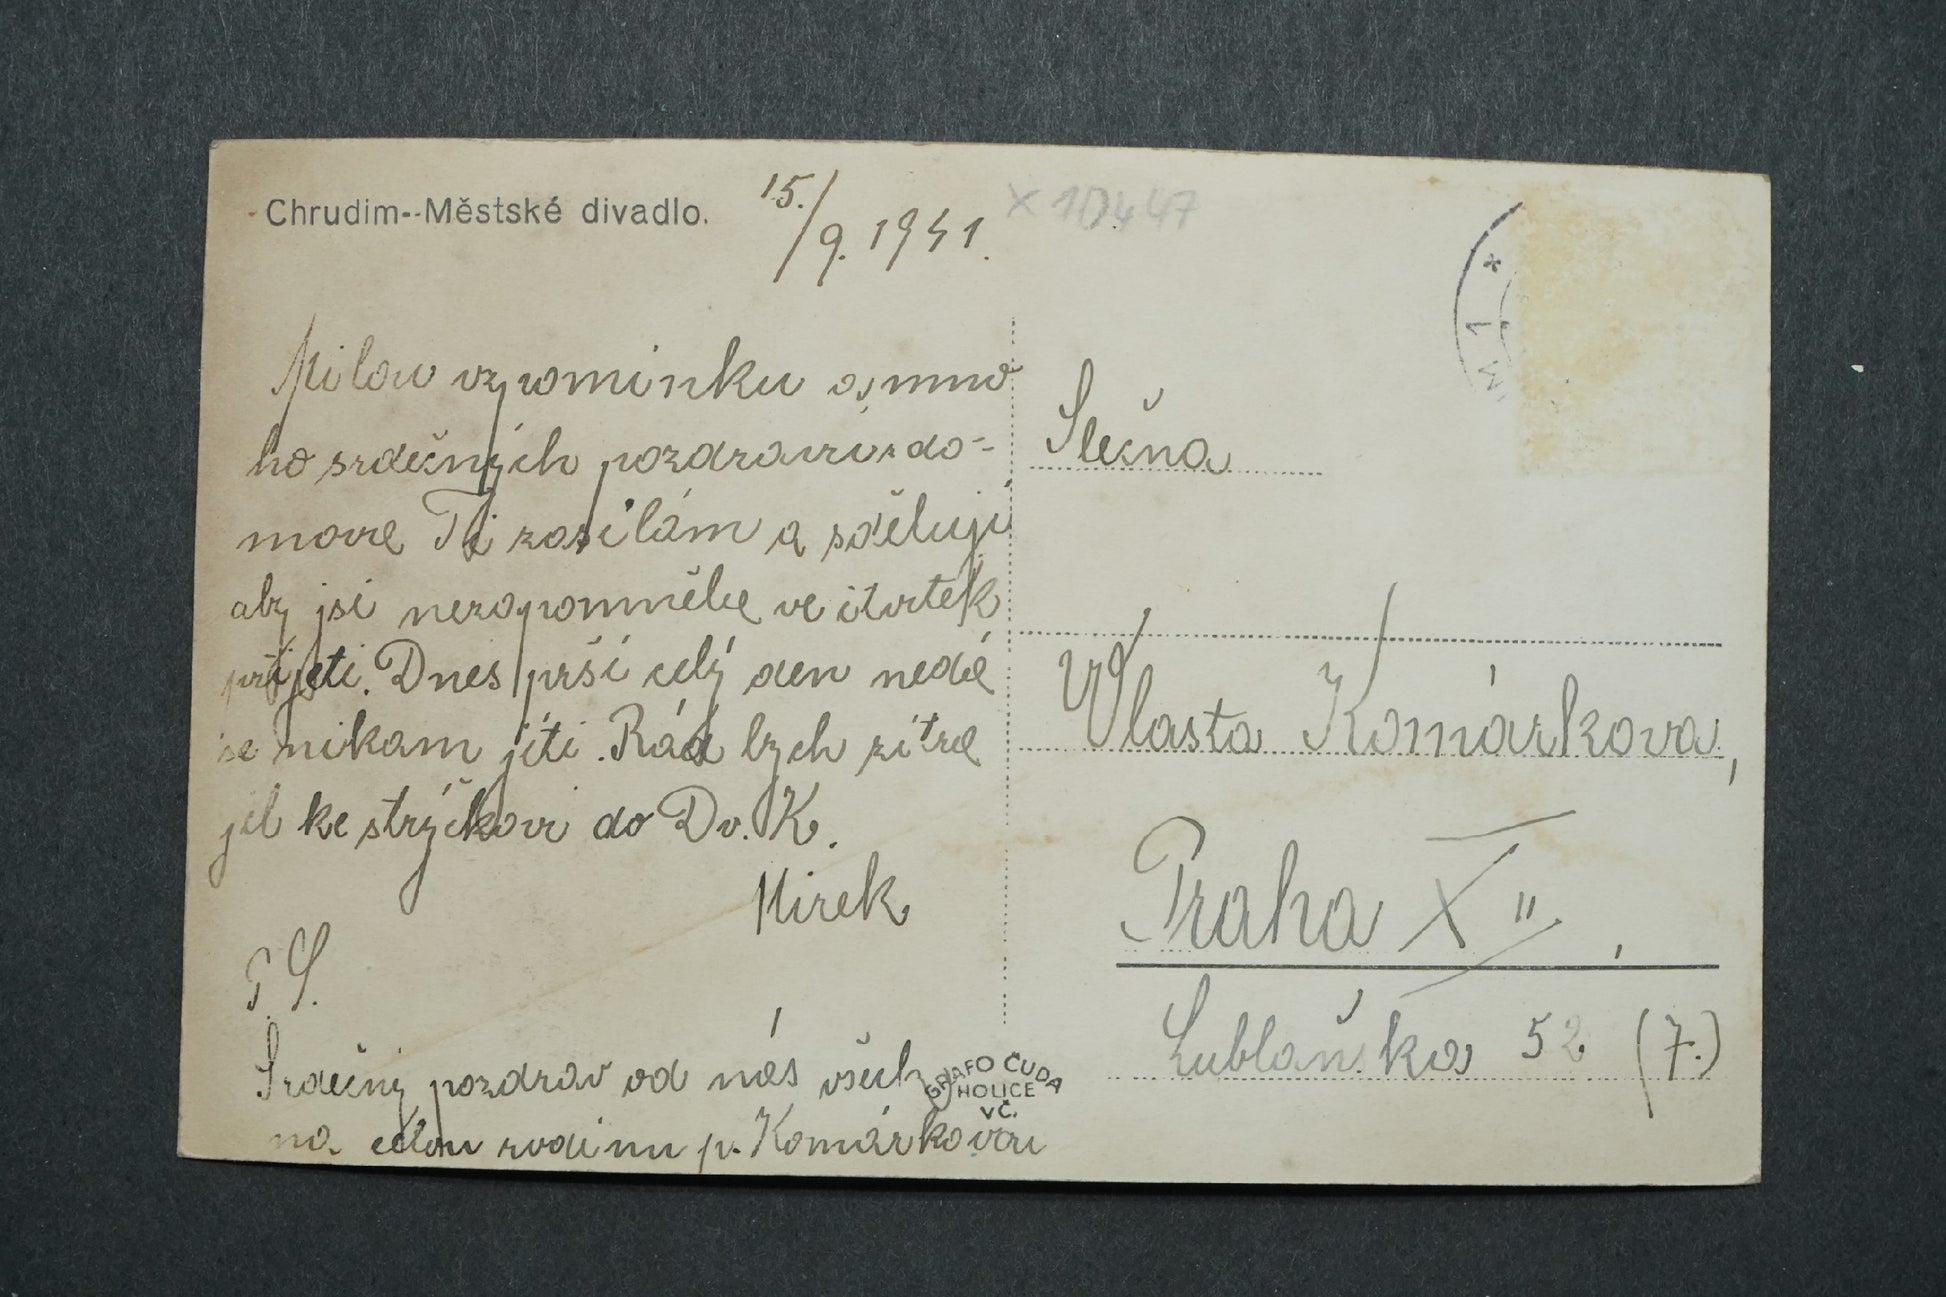 Chrudim--Městské divadlo.
15./9. 1941.
x 1D447
Milou vzpomínku a mno
ho srdečných pozdravů z do-
mova Ti zasílám a sděluji
aby jsi nezapomněla ve čtvrtek
přijeti. Dnes prší celý den nedá
se nikam jíti. Rád bych zítra
jel ke strýčkovi do Dv. K.
Mirek
P. S.
Srdečný pozdrav od nás všech
na celou rodinu p. Komárkovou
GRAFO ČUDA
HOLICE
VČ.
M 1 *
Slečna
Vlasta Komárkova,
Praha XII,
Lublaňska 52 (7.)